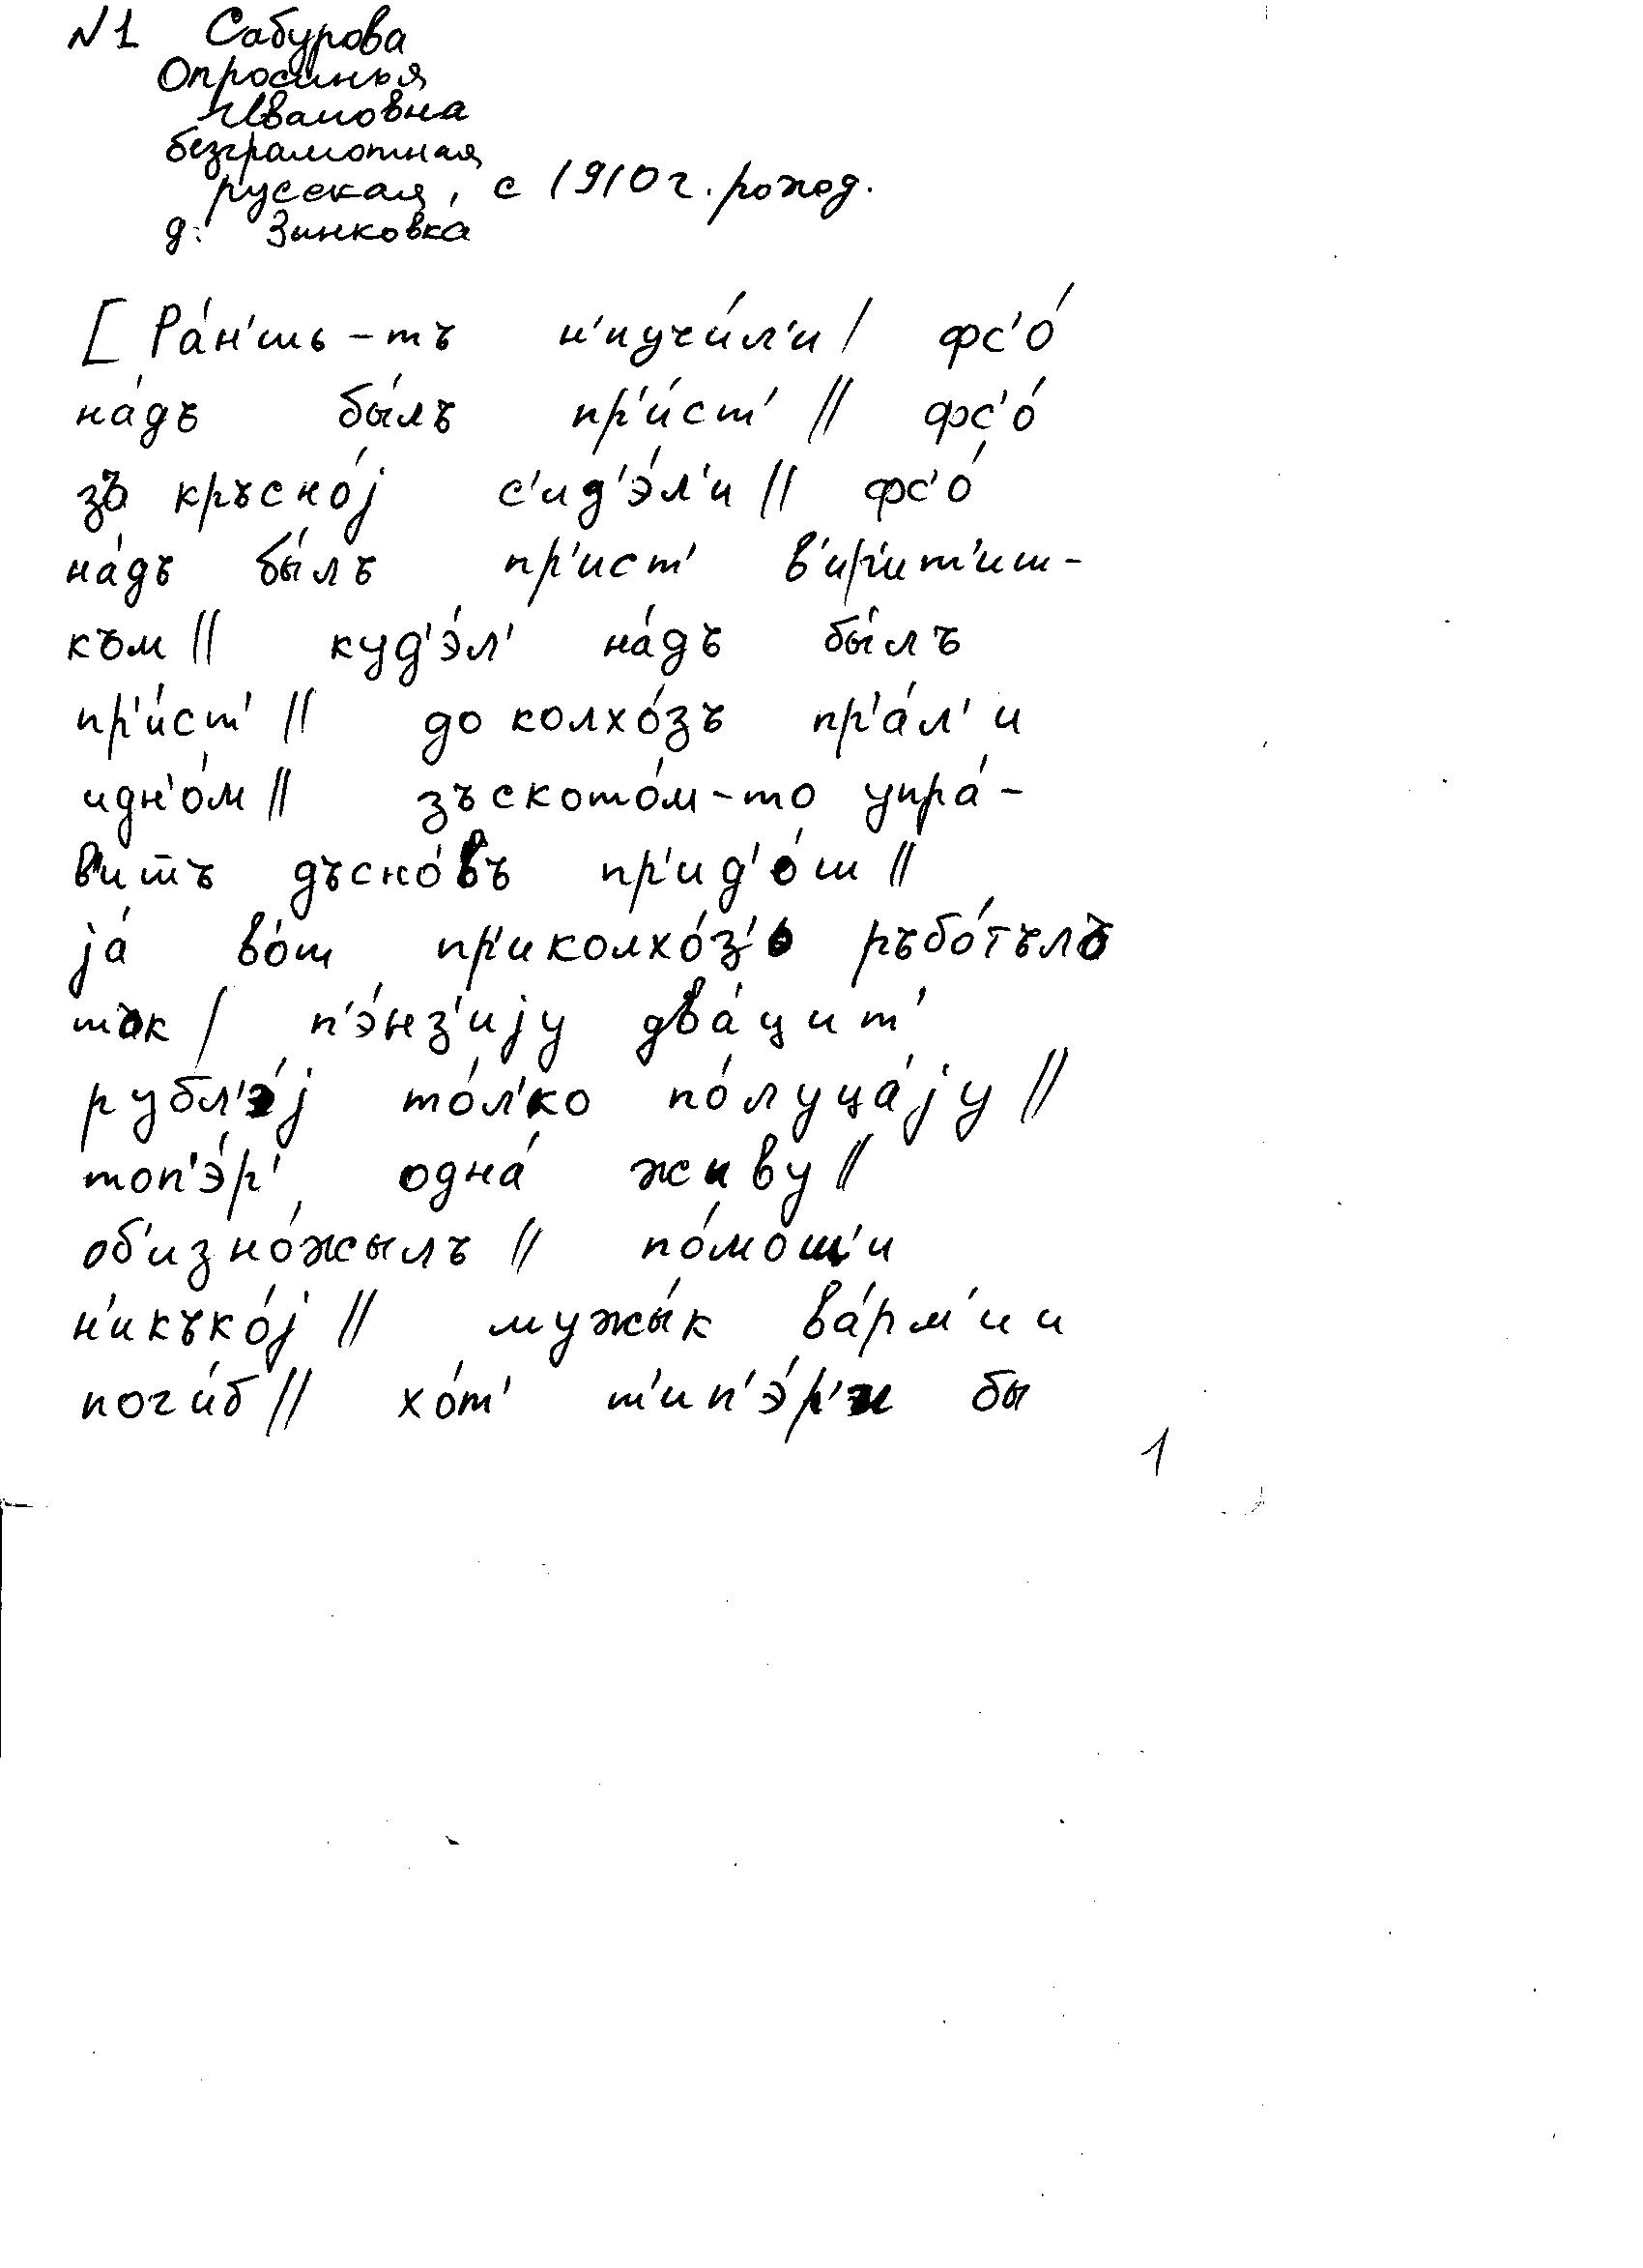 N1 Сабурова
Опросинья
Ивановна
безграмотная
русская, с 1910г. рожд.
д. Зинковка
[ Ра́н'шь-тъ н'иучи́л'и / фс'о́
на́дъ бы́лъ пр'и́ст' // фс'о́
зъ кръсно́j с'ид'э́л'и // фс'о́
на́дъ бы́лъ пр'ист' в'ир'ит'иш-
към // куд'э́л' на́дъ бы́лъ
пр'и́ст' // до колхо́зъ пр'а́л'и
идн'о́м // зъското́м-то упра́-
в'итъ дъсно́въ пр'ид'о́ш //
jа́ во́т пр'иколхо́з'ь ръбо́тълъ
тък / п'э́нз'иjу два́цит'
рубл'э́j то́л'ко по́луца́jу //
топ'э́р' одна́ живу //
об'изно́жылъ // по́мощ'и
н'икъко́j // мужы́к ва́рм'ии
поги́б // хо́т' т'ип'э́р'и бы
1